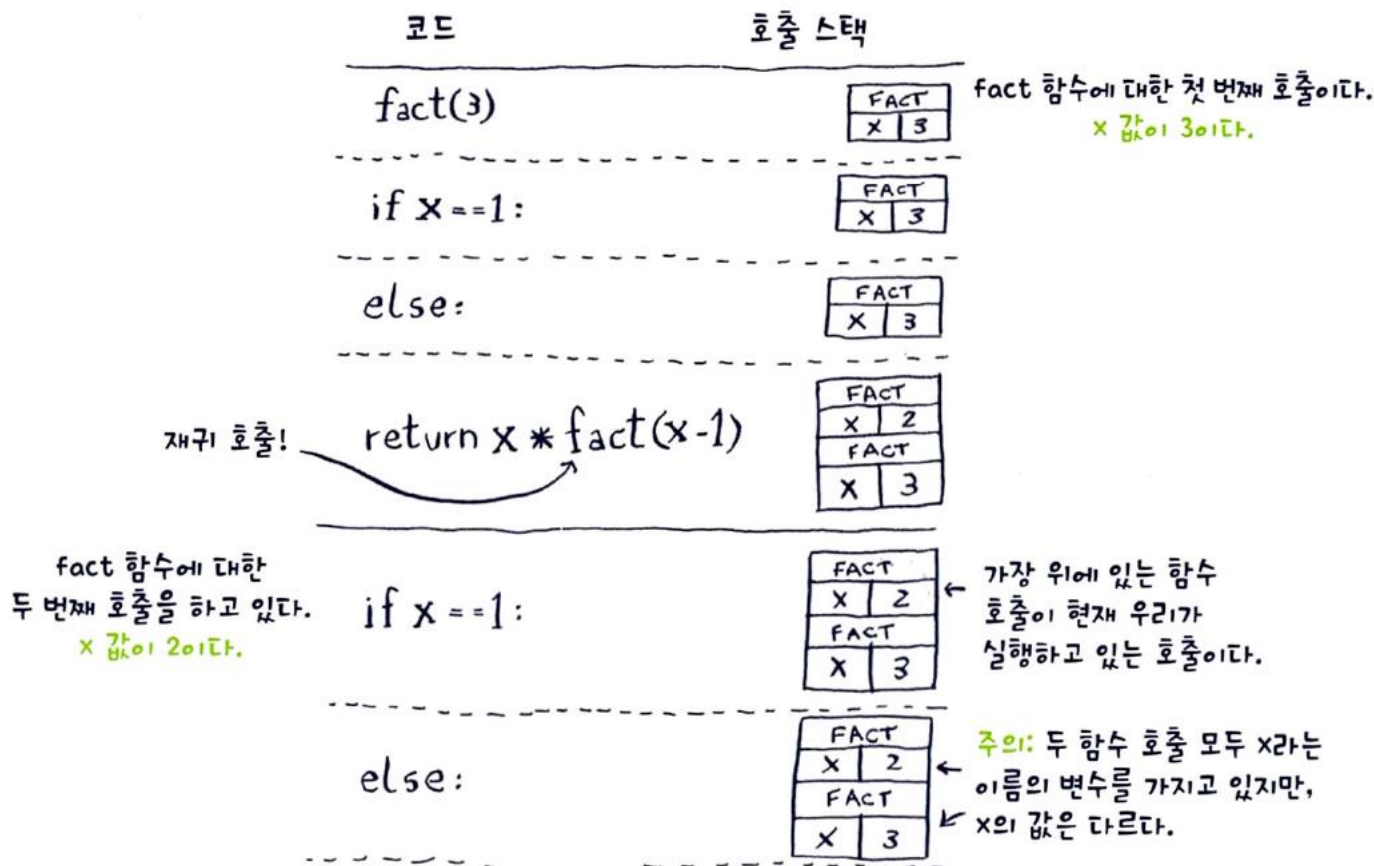 코드 호출 스택
fact(3)
FACT
X 3
fact 함수에 대한 첫 번째 호출이다.
x 값이 3이다.
if x==1:
FACT
X 3
else:
FACT
X 3
재귀 호출!
return x * fact(x-1)
FACT
X 2
FACT
X 3
fact 함수에 대한
두 번째 호출을 하고 있다.
x 값이 2이다.
if x==1:
FACT
X 2
FACT
X 3
가장 위에 있는 함수
호출이 현재 우리가
실행하고 있는 호출이다.
else:
FACT
X 2
FACT
X 3
주의: 두 함수 호출 모두 x라는
이름의 변수를 가지고 있지만,
x의 값은 다르다.